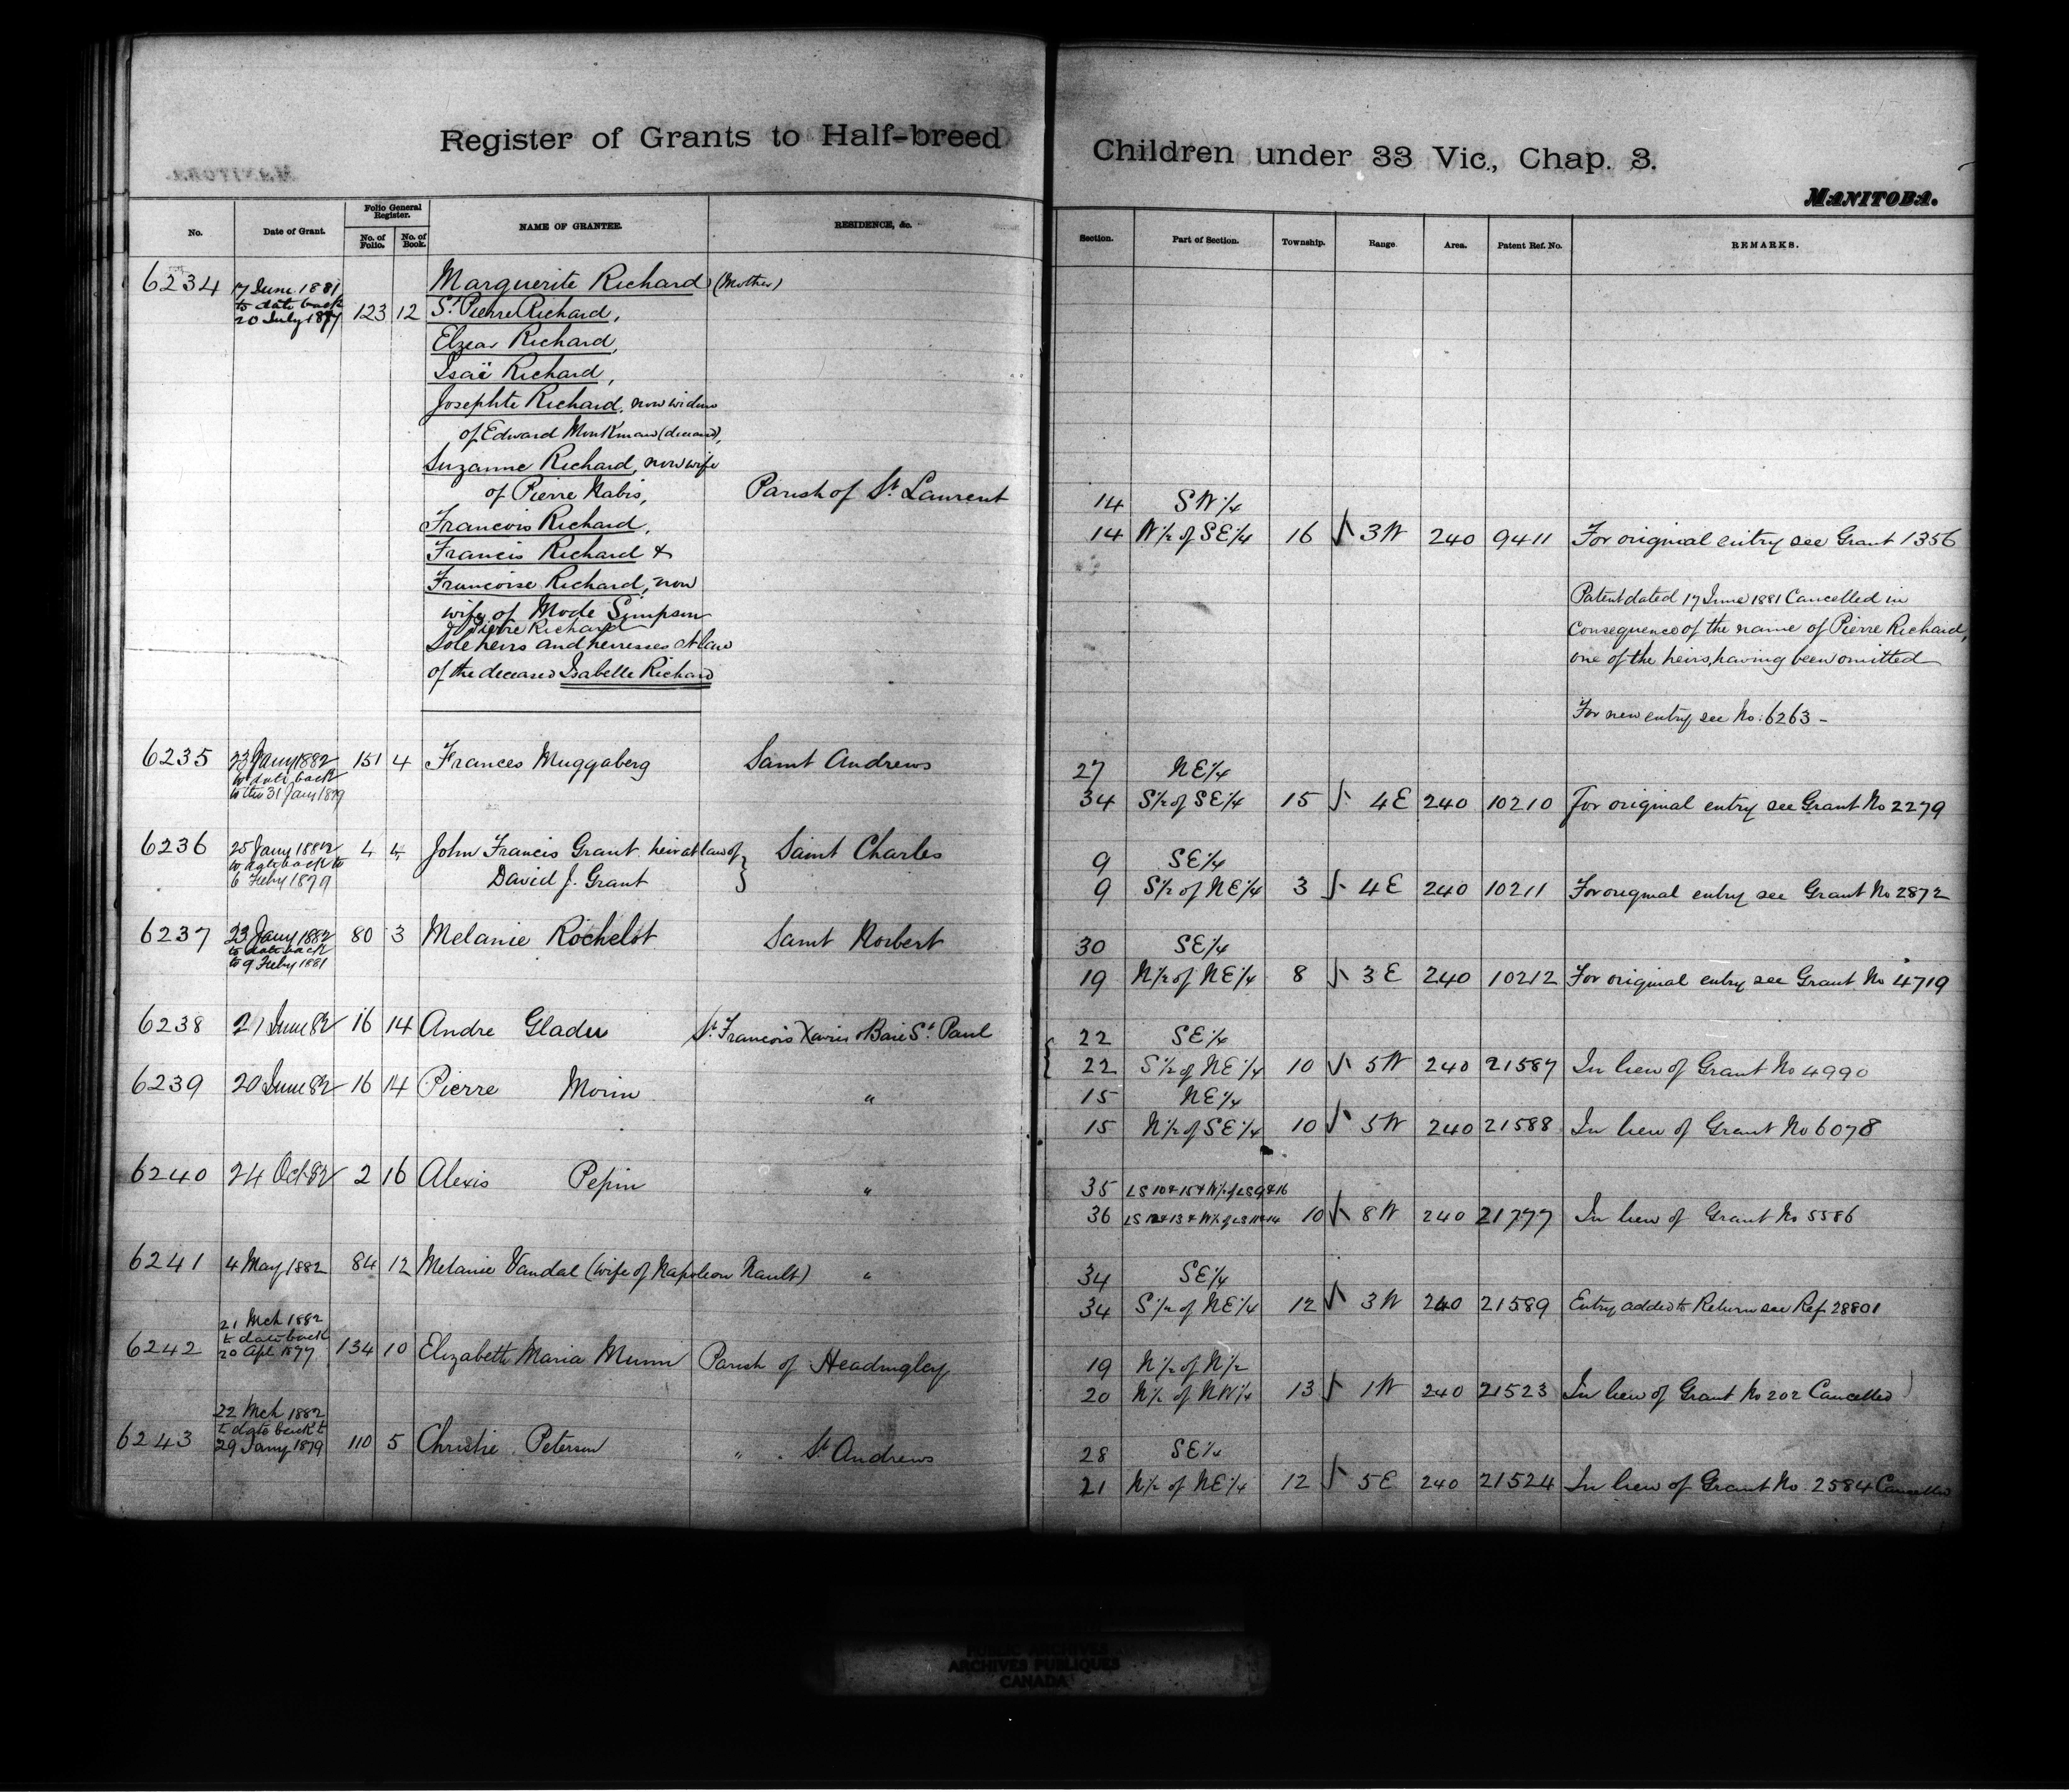 Register of Grants to Half-breed Children under 33 Vic., Chap. 3.
MANITOBA.
No. Date of Grant. Folio General Register. No. of Folio. No. of Book. NAME OF GRANTEE. RESIDENCE, &c. Section. Part of Section. Township. Range. Area. Patent Ref. No. REMARKS.
6234 17 June 1881 Marguerite Richard (Mother)
to date back
20 July 1877 123 12 St Pierre Richard,
Elzear Richard,
Isaïe Richard,
Josephte Richard, now widow
of Edward Monkman (deceased),
Suzanne Richard, now wife
of Pierre Nabis, Parish of St. Laurent 14 SW 1/4
Francois Richard, 14 N 1/2 of SE 1/4 16 3W 240 9411 For original entry see Grant 1356
Francis Richard &
Francoise Richard, now Patent dated 17 June 1881 Cancelled in
wife of Mode Simpson consequence of the name of Pierre Richard,
& Pierre Richard
Sole heirs and heiresses at law one of the heirs, having been omitted
of the deceased Isabelle Richard
For new entry see No: 6263 -
6235 23 Jany 1882 151 4 Frances Muggaberg Saint Andrews 27 NE 1/4
to date back
to the 31 Jany 1879 34 S 1/2 of SE 1/4 15 4E 240 10210 For original entry see Grant No 2279
6236 25 Jany 1882 4 4 John Francis Grant heir at law of } Saint Charles 9 SE 1/4
to date back to
6 Feby 1879 David J. Grant 9 S 1/2 of NE 1/4 3 4E 240 10211 For original entry see Grant No 2872
6237 23 Jany 1882 80 3 Melanie Rochelot Saint Norbert 30 SE 1/4
to date back
to 9 Feby 1881 19 N 1/2 of NE 1/4 8 3E 240 10212 For original entry see Grant No 4719
6238 21 June 82 16 14 Andre Gladu St. Francois Xavier & Baie St. Paul 22 SE 1/4
22 S 1/2 of NE 1/4 10 5W 240 21587 In lieu of Grant No 4990
6239 20 June 82 16 14 Pierre Morin " 15 NE 1/4
15 N 1/2 of SE 1/4 10 5W 240 21588 In lieu of Grant No 6078
6240 24 Oct 82 2 16 Alexis Pepin " 35 LS 10 & 15 & W 1/2 of LS 9 & 16
36 LS 12 & 13 & W 1/2 of LS 11 & 14 10 8W 240 21777 In lieu of Grant No 5586
6241 4 May 1882 84 12 Melanie Vandal (wife of Napoleon Nault) " 34 SE 1/4
34 S 1/2 of NE 1/4 12 3W 240 21589 Entry added to Return see Ref 28801
21 Mch 1882
to date back
6242 20 Apl 1877 134 10 Elizabeth Maria Munn Parish of Headingley 19 N 1/2 of N 1/2
20 N 1/2 of NW 1/4 13 1W 240 21523 In lieu of Grant No 202 Cancelled
22 Mch 1882
to date back to
6243 29 Jany 1879 110 5 Christie Peterson " " St Andrews 28 SE 1/4
21 N 1/2 of NE 1/4 12 5E 240 21524 In lieu of Grant No. 2584 Cancelled
PUBLIC ARCHIVES
ARCHIVES PUBLIQUES
CANADA